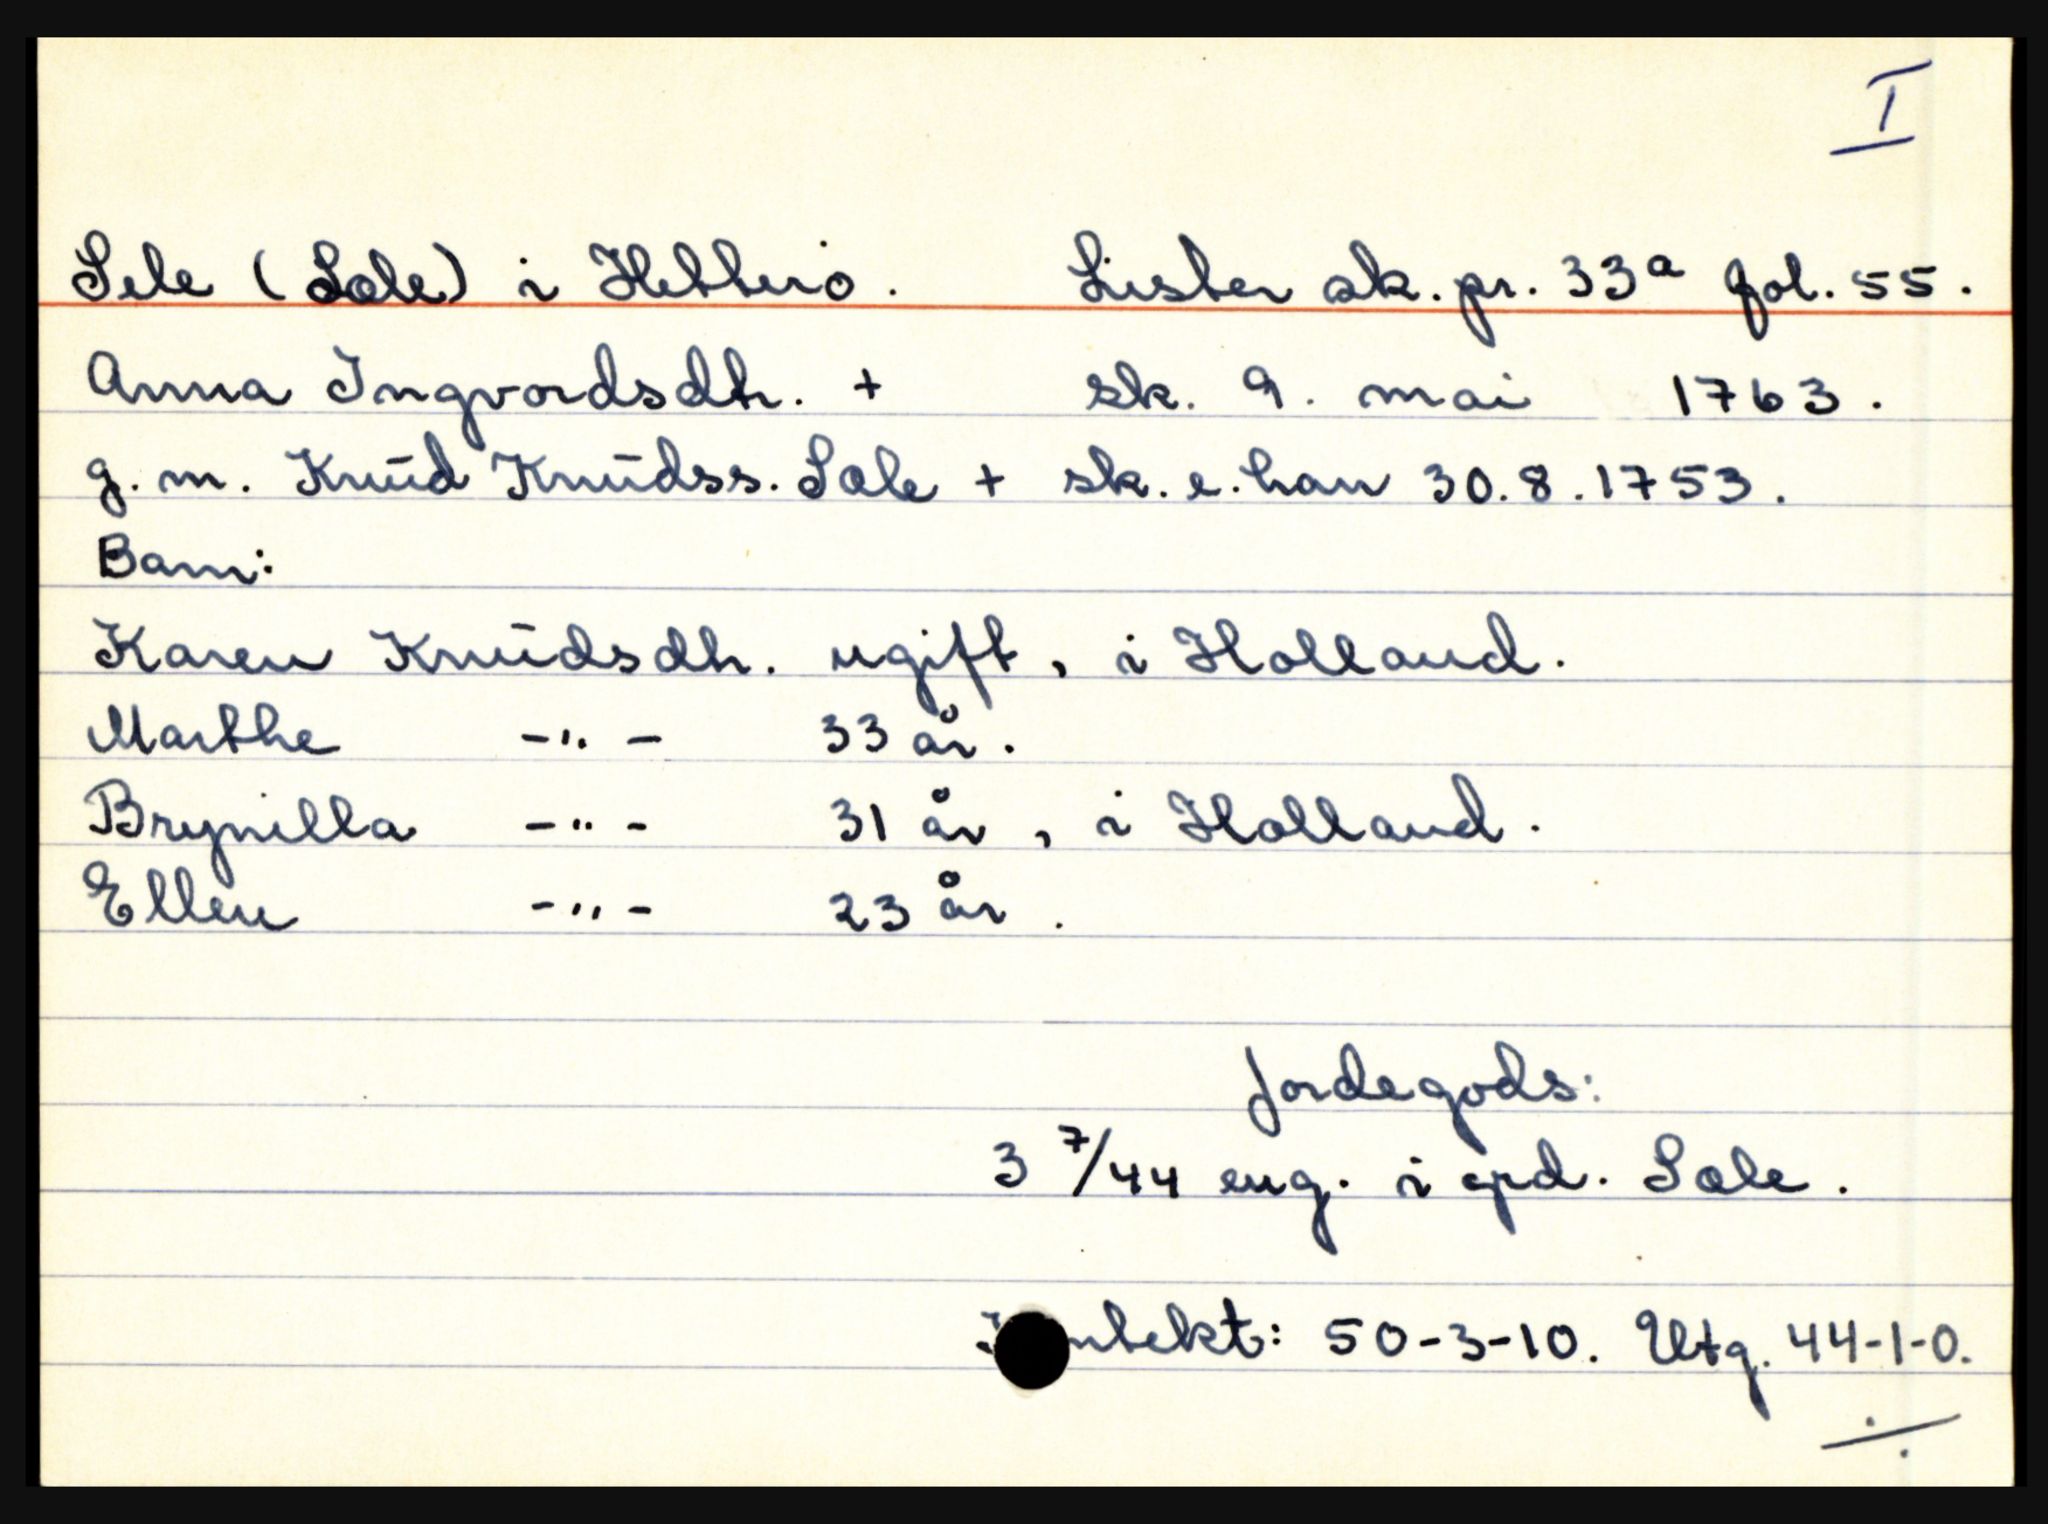 I
Sele (Sæle) i Hetterö. Lister sk. pr. 33a fol. 55.
Anna Ingvordsdtr. + sk. 9. mai 1763.
g. m. Knud Knudss. Sæle + sk. e. han 30.8.1753.
Barn:
Karen Knudsdtr. ugift, i Holland.
Marthe -"- 33 år.
Brynilla -"- 31 år, i Holland.
Ellen -"- 23 år.
Jordegods:
3 7/44 eng. i grd. Sæle.
ntekt: 50-3-10. Utg. 44-1-0.